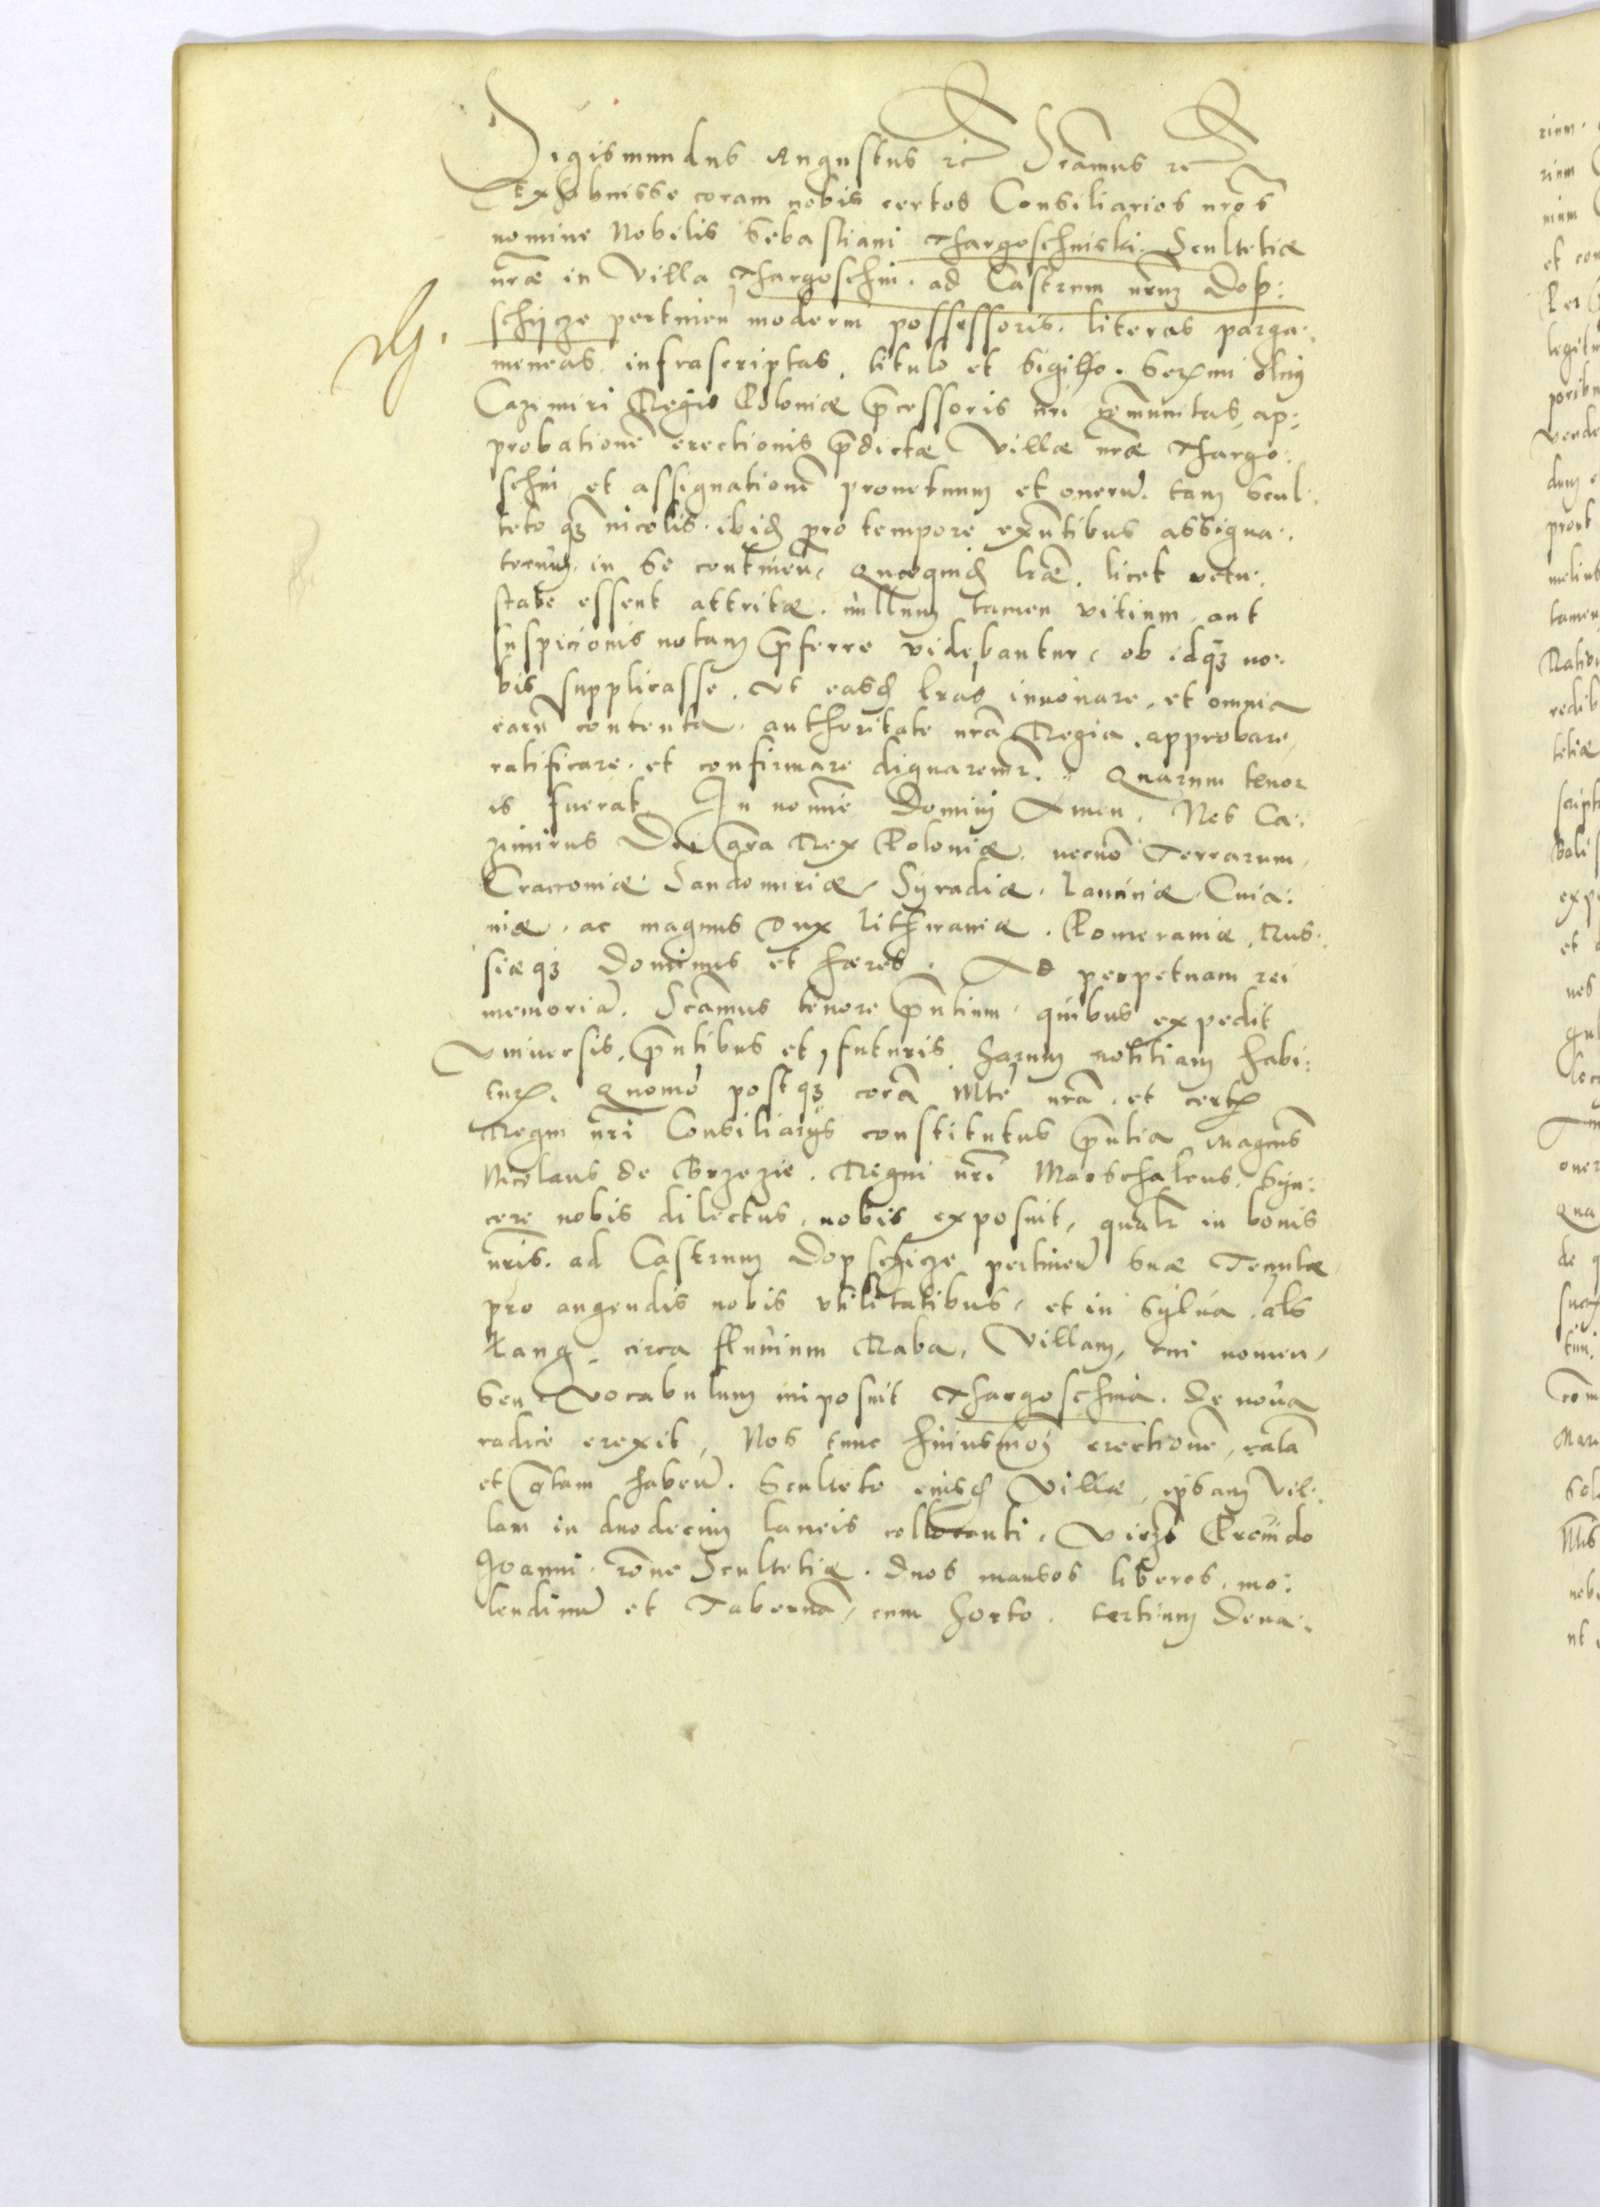 Sigismundus Augustus rc Scamus rc
Exhibuisse coram nobis certos Consiliarios nros
nomine Nobilis Sebastiani Thargoschinski Scultetiæ
nræ in Villa Thargoschin. ad Castrum nrum Dop:
schycze pertinen moderni possessoris. literas parga:
meneas infrascriptas, titulo et sigillo. Sermi olim
Cazimiri Regis Poloniæ pcessoris nri communitas, ap:
probatione erectionis pdictæ Villæ nræ Thargo:
schin et assignatione prouetuum et oneru. tam Scul:
teto qz incolis. ibid pro tempore exntibus assigna:
torum in se continen, Quæquid lræ. licet vetu:
state essent attritæ. nullum tamen vitium, aut
suspicionis notam pferre videbantur, ob idqz no:
bis supplicasse. vt easd lras innouare, et omnia
earu contenta. authoritate nra Regia, approbare,
ratificare. et confirmare dignaremr. Quarum tenor
is fuerat In nomine Domini Amen. Nos Ca:
zimirus Dei gra Rex Poloniæ. necno Terrarum,
Cracouiæ Sandomiriæ, Syradiæ. Lanciciæ. Cuia:
uiæ. ac magnus Dux Lithuaniæ. Pomeraniæ, Rus:
siæqz Dominus et hæres. Ad perpetuam rei
memoria. Scamus tenore pntium. quibus expedit
Vniuersis, pntibus et, futuris, harum notitiam habi:
tur. Quomo postqz cora Mte nra. et cert
Regni nri Consiliarys constitutus pntia, Magcus
Nicolaus de Brzezie. Regni nri Marschalcus. Syn:
cere nobis dilectus, nobis exposuit, qualr in bonis
nris. ad Castrum Dopschicze pertinen suæ Tenutæ
pro augendis nobis vtilitatibus, et in Sylua, als
Lang, circa fluuium Raba, Villam, cui nomen,
seu Vocabulum imposuit Thargoschina. de noua
radice erexit, Nos tunc huiusmoi erectione, rata
et gtam haben. Sculteto eiusd Villæ, ipsam Vil:
lam in duodecim laneis collocanti. Prouido
Joanni. rone Scultetiæ. duos mansos liberos, mo:
lendinu et Taberna, cum horto. tertium dena: